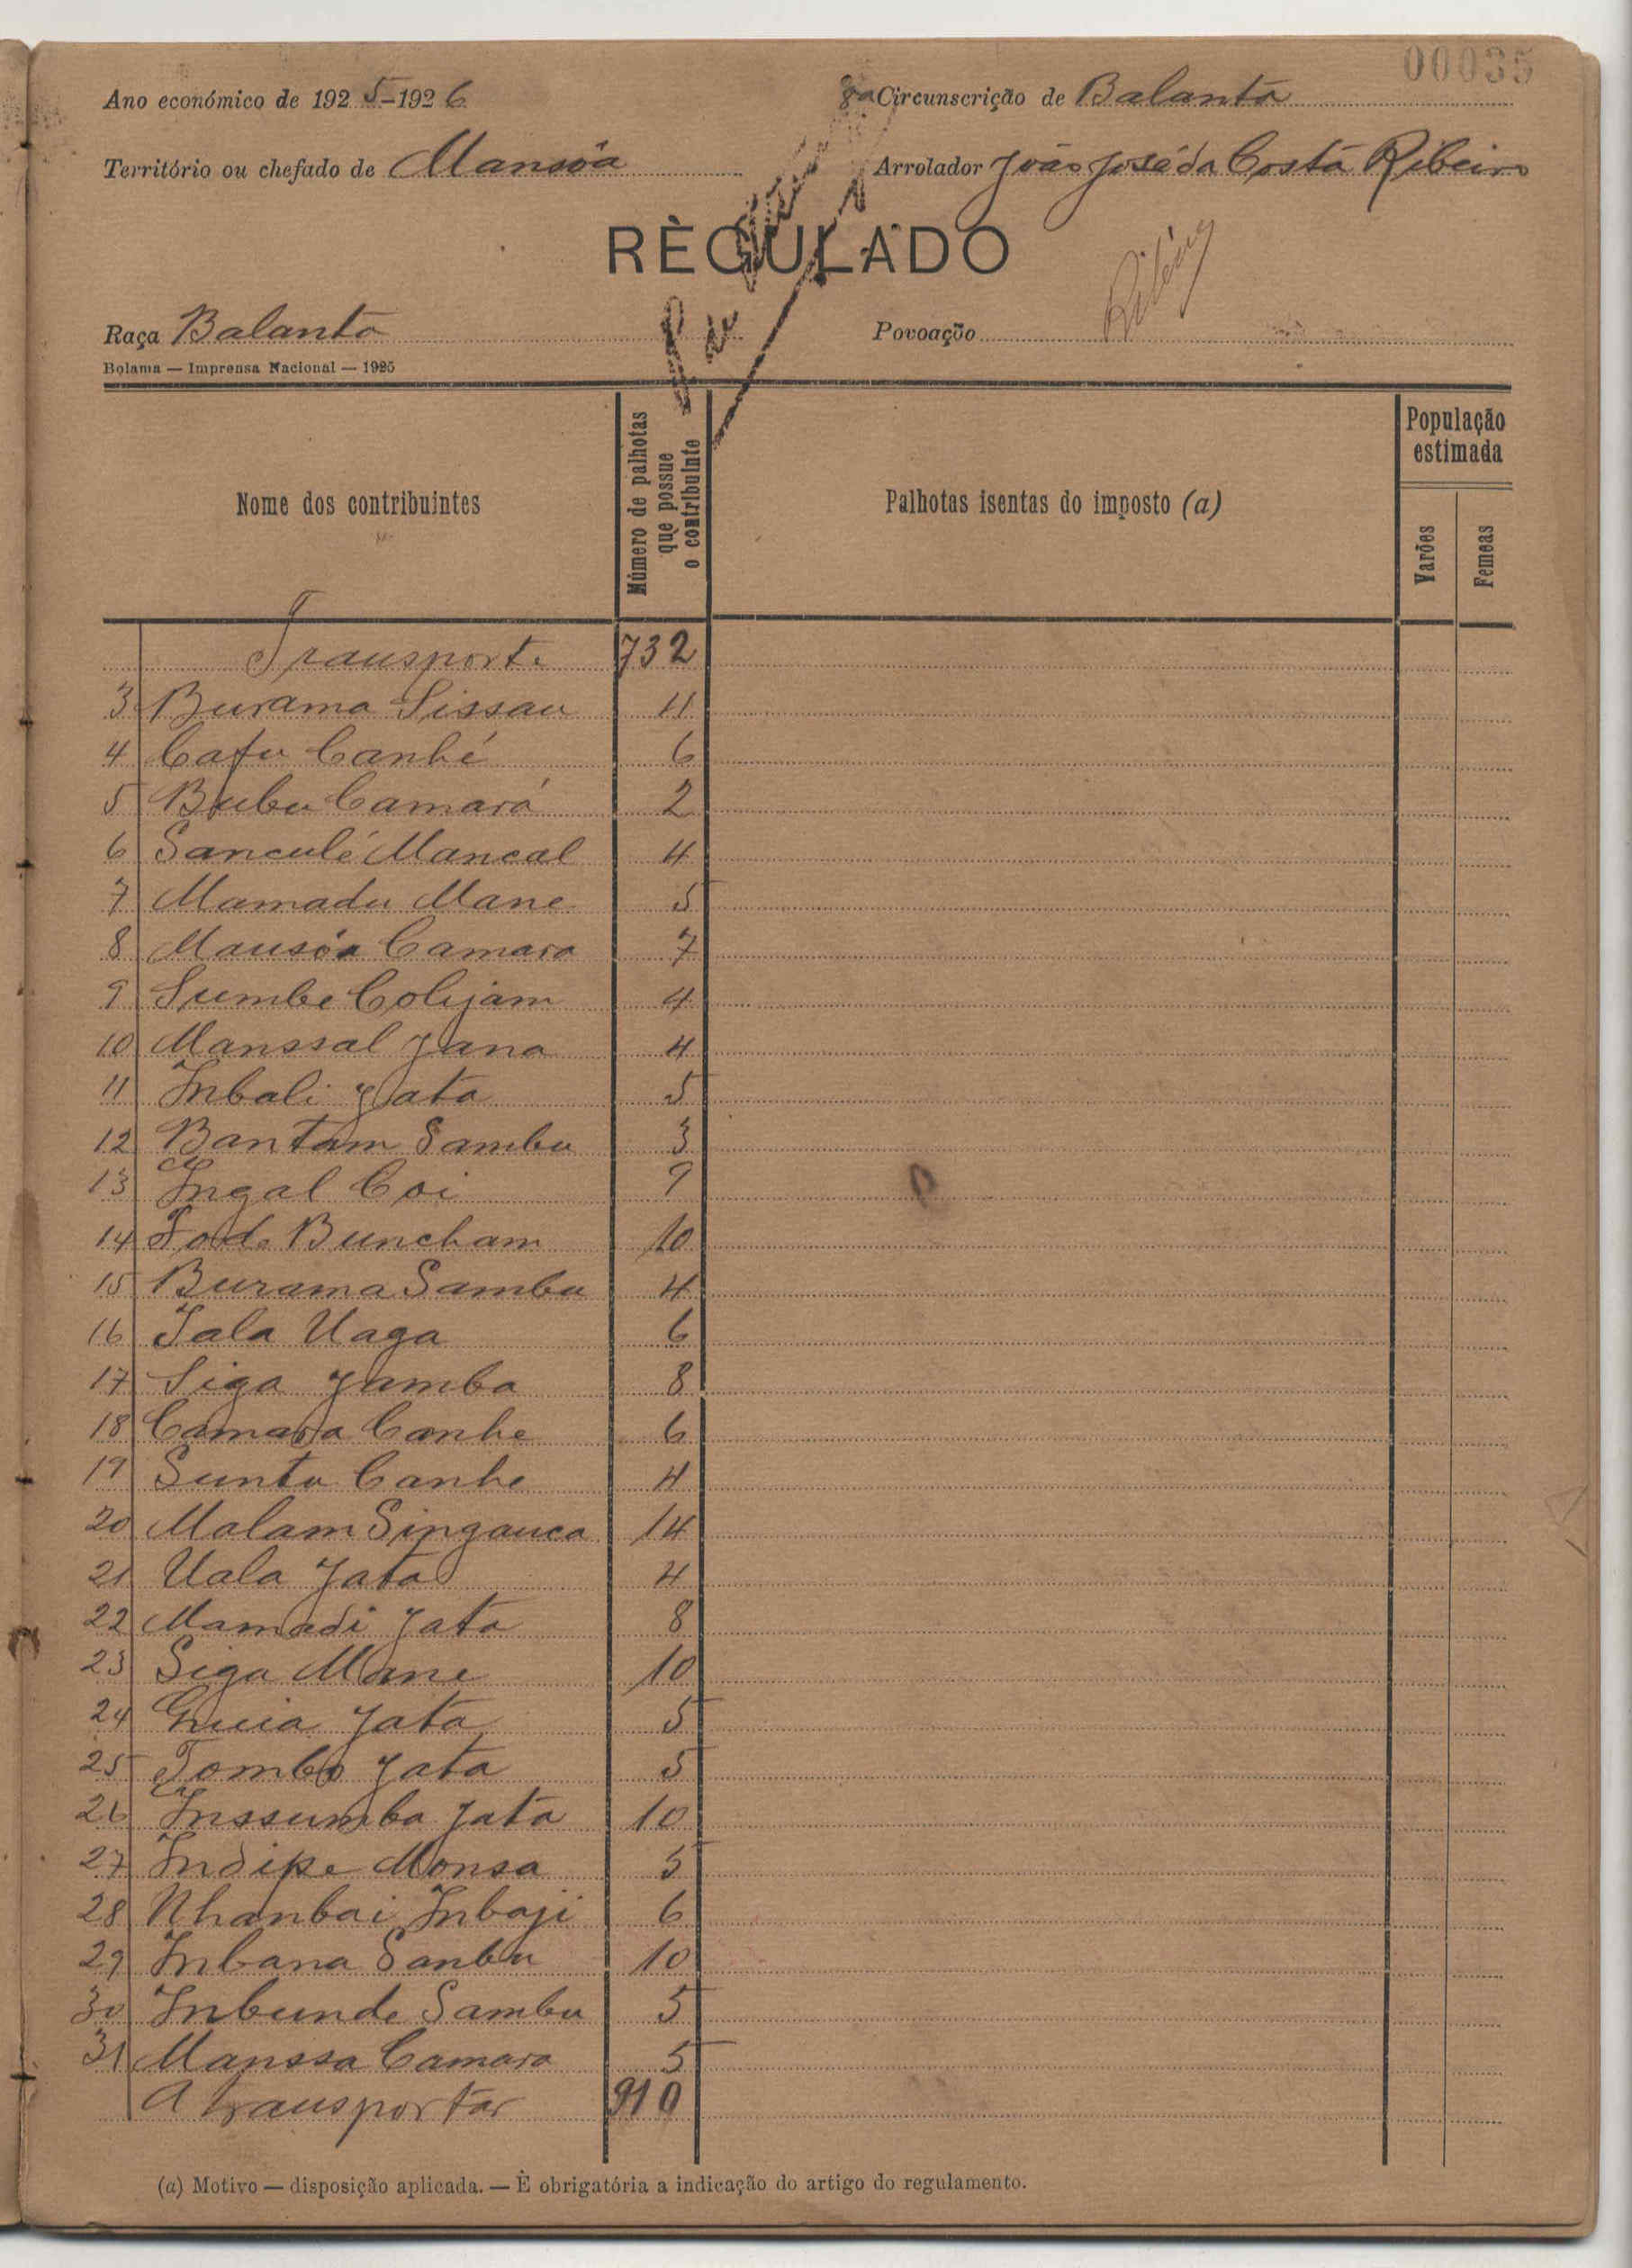 00035
Ano económico de 1925-1926
8ª Circunscrição de Balanta
Território ou chefado de Mansôa
Arrolador João José da Costa Ribeiro
RÈGULADO
Raça Balanta
Povoação
Bolama — Imprensa Nacional — 1925
Nome dos contribuintes
Número de palhotas que possue o contribuinte
Palhotas isentas do imposto (a)
População estimada
Varões
Femeas
Transporte 732
3 Burama Sissau 11
4 Cafu Canhé 6
5 Bubu Camará 2
6 Sanculé Mancal 4
7 Mamadu Mane 5
8 Mansôa Camara 7
9 Sumbe Colijam 4
10 Manssal Jana 4
11 Inbali Jata 5
12 Bantam Sambu 3
13 Ingal Coi 9
14 Fode Buncham 10
15 Burama Sambu 4
16 Iala Uaga 6
17 Siga Jamba 8
18 Camara Canhe 6
19 Suntu Canhe 4
20 Malam Singanca 14
21 Uala Jata 4
22 Mamadi Jata 8
23 Siga Mane 10
24 Jata 5
25 Tombo Jata 5
26 Inssumba Jata 10
27 Indipe Monsa 5
28 Nhanbai Inbaji 6
29 Inbana Sanbu 10
30 Inbunde Sambu 5
31 Manssa Camara 5
A transportar 910
(a) Motivo — disposição aplicada. — È obrigatória a indicação do artigo do regulamento.